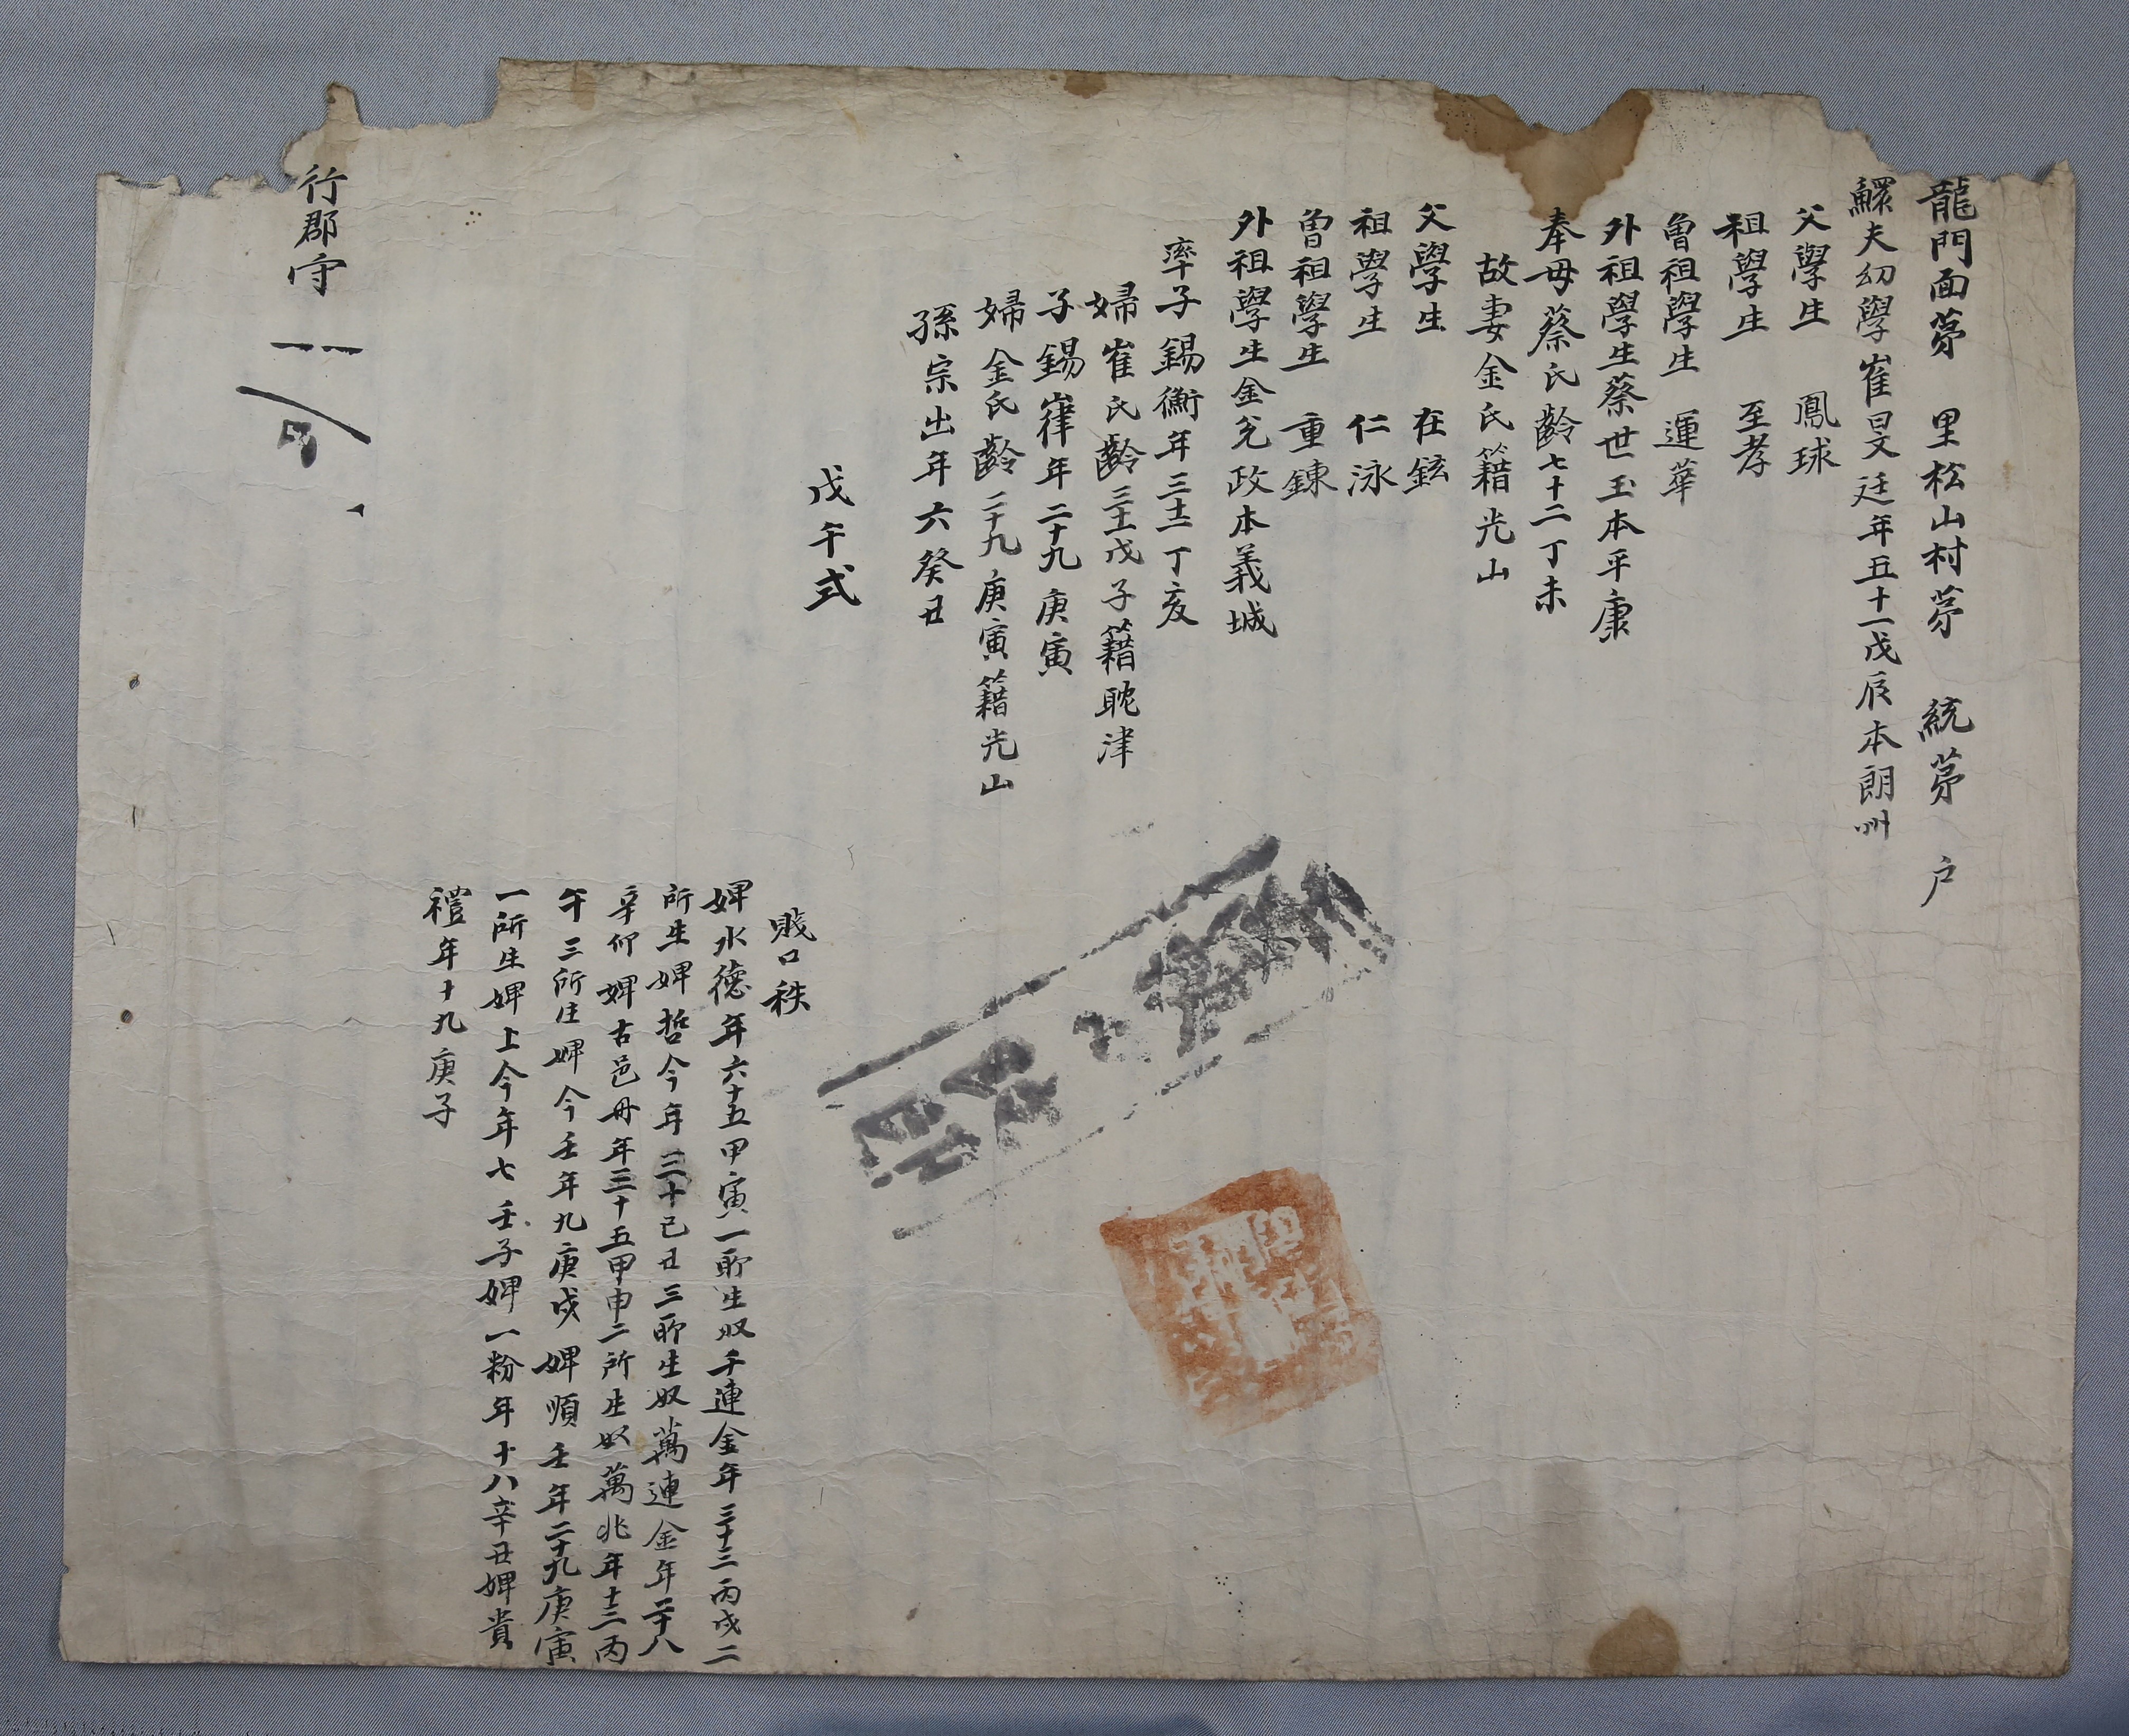 龍門面苐 里松山村苐 統苐 户
鰥夫幼學崔旻廷年五十一戊辰本朗州
父學生 鳳球
祖學生 至孝
曾祖學生 運華
外祖學生蔡世玉本平康
奉母蔡氏齡七十二丁未
故妻金氏籍光山
父學生 在鉉
祖學生 仁泳
曾祖學生 重鍊
外祖學生金兊政本義城
率子錫衡年三十二丁亥
婦崔氏齡三十一戊子籍耽津
子錫嵂年二十九庚寅
婦金氏齡二十九庚寅籍光山
孫宗出年六癸丑
戊午式
賤口秩
婢水德年六十五甲寅一所生奴千連金年三十三丙戌二
所生婢哲今年三十己丑三所生奴萬連金年二十八
辛卯婢古邑丹年三十五甲申二所生奴萬兆年十三丙
午三所生婢今壬年九庚戌婢順壬年二十九庚寅
一所生婢上今年七壬子婢一粉年十八辛丑婢貴
禮年十九庚子
行郡守